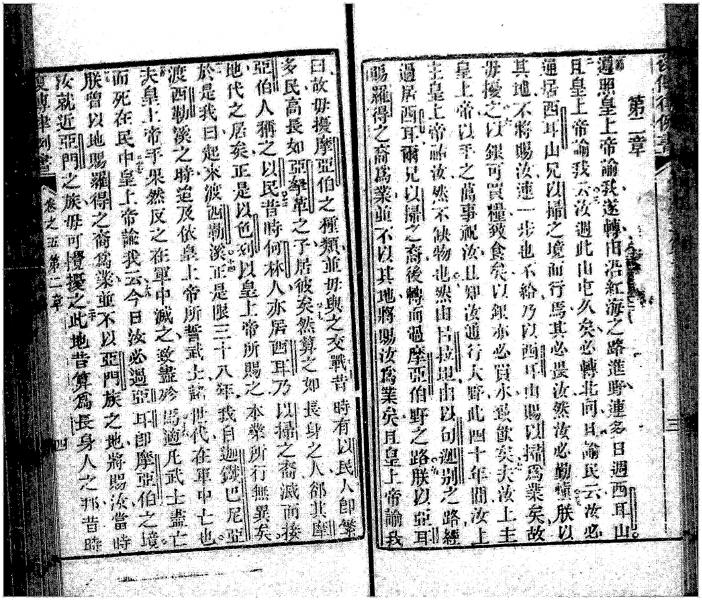 第二章
遵照皇上帝諭我遂轉由沿紅海之路進野連多日週西耳山
且皇上帝諭我云汝週此山屯久矣必轉北向且諭民云汝必
通居西耳山兄以掃之境而行焉其必畏汝然汝必勤慎朕以
其地不將賜汝連一步也不給乃以西耳山賜以掃爲業矣故
毋擾之以銀可買糧致食矣以銀亦必買水致飲矣夫汝上主
皇上帝以手之萬事祝汝且知汝通行大野此四十年間汝上
主皇上帝祐汝然不缺物也然由
過居西耳爾兄以掃之裔後轉而過摩亞伯野之路朕以亞耳
賜羅得之裔爲業並不以其地將賜汝爲業矣且皇上帝諭我
曰故毋擾摩亞伯之種類並毋與之交戰昔時有以民人卽繁
多民高長如亞拏革之子居彼矣然算之如長身之人卻其摩
亞伯人稱之以民昔時何林人亦居西耳乃以掃之裔滅而接
地代之居矣正是以色列以皇上帝所賜之本業所行無異矣
於是我曰起來渡西勒溪正是限三十八年我自迦鐵巴尼亞
渡西勒溪之時迨及依皇上帝所誓武士諸世代在軍中亡也
夫皇上帝手果然反之在軍中滅之致盡殄焉適凡武士盡亡
而死在民中皇上帝諭我云今日汝必過亞耳卽摩亞伯之境
朕曾以地賜羅得之裔爲業並不以亞門族之地將賜汝當時
汝就近亞門之族毋可攪擾之此地昔算爲長身人之邦昔時
卷之五第二章
三
四